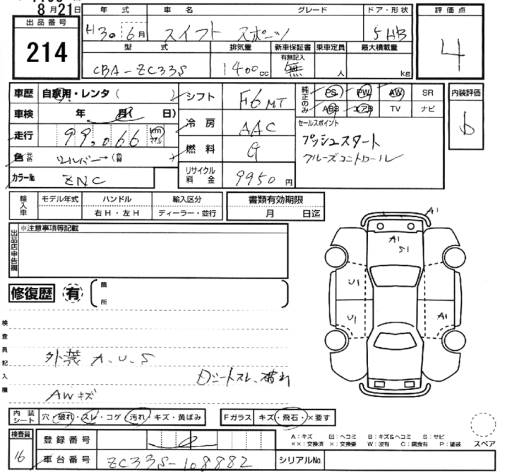 8月21日
出品番号
214
年式 車名 グレード ドア・形状
H30年6月 スイフト スポーツ 5HB
型式 排気量 新車保証書 乗車定員 最大積載量
有無記入
CBA-ZC33S 1400cc 無 人 kg
評価点
4
車歴 自家用・レンタ( )
車検 年 月 日
走行 99,066 km
色
カラー№ ZNC
シフト F6 MT
冷房 AAC
燃料 G
リサイクル料金 9950円
純正のみ
PS PW AW SR
ABS エアB TV ナビ
セールスポイント
プッシュスタート
クルーズコントロール
内装評価
b
輸入車 モデル年式 ハンドル 輸入区分
右H・左H ディーラー・並行
書類有効期限
月 日迄
出品店申告欄
※注意事項等記載
修復歴 有 箇所
検査員記入欄
外装 A.U.S
Dシートスレ、破れ
AWキズ
A1
A1
S1
U1
A1
U1
A1
内装シート 穴・破れ・スレ・コゲ・汚れ・キズ・黄ばみ
Fガラス キズ・飛石・×要す
A:キズ 凹:ヘコミ B:キズ&ヘコミ S:サビ
××:交換済 ×:交換 W:波有 C:腐食有 P:塗装
スペア
検査員
16
登録番号
車台番号 ZC33S-108882
シリアルNo.